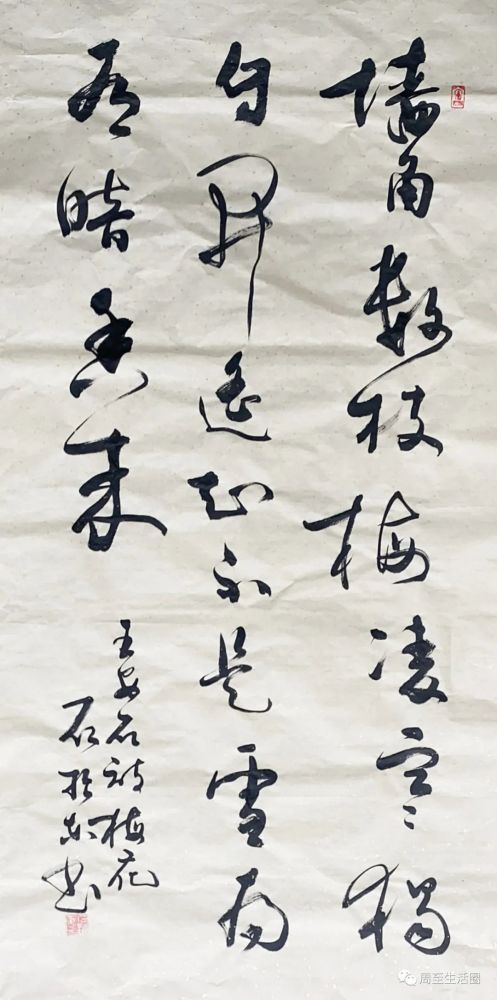 墙角数枝梅凌寒独
自開遥知不是雪為
有暗香来
王安石诗梅花
石书
周至生活圈